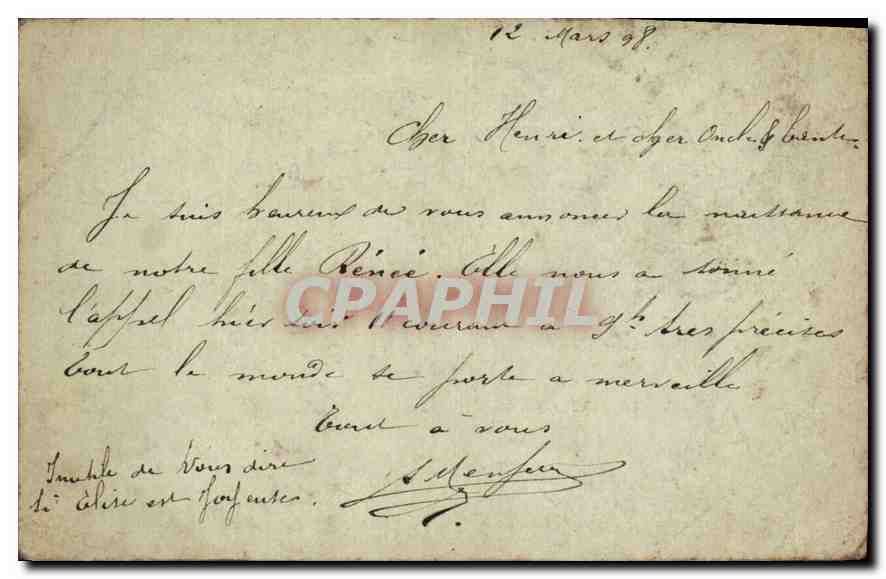 12 Mars 98.
Cher Henri. et cher Oncle & tante
Je suis heureux de vous annoncer la naissance
de notre fille Rénée. Elle nous a sonné
l'appel hier soir 11 courant a 9h très précises
CPAPHIL
tout le monde se porte a merveille
tout à vous
Inutile de vous dire
si Elise est joyeuse.